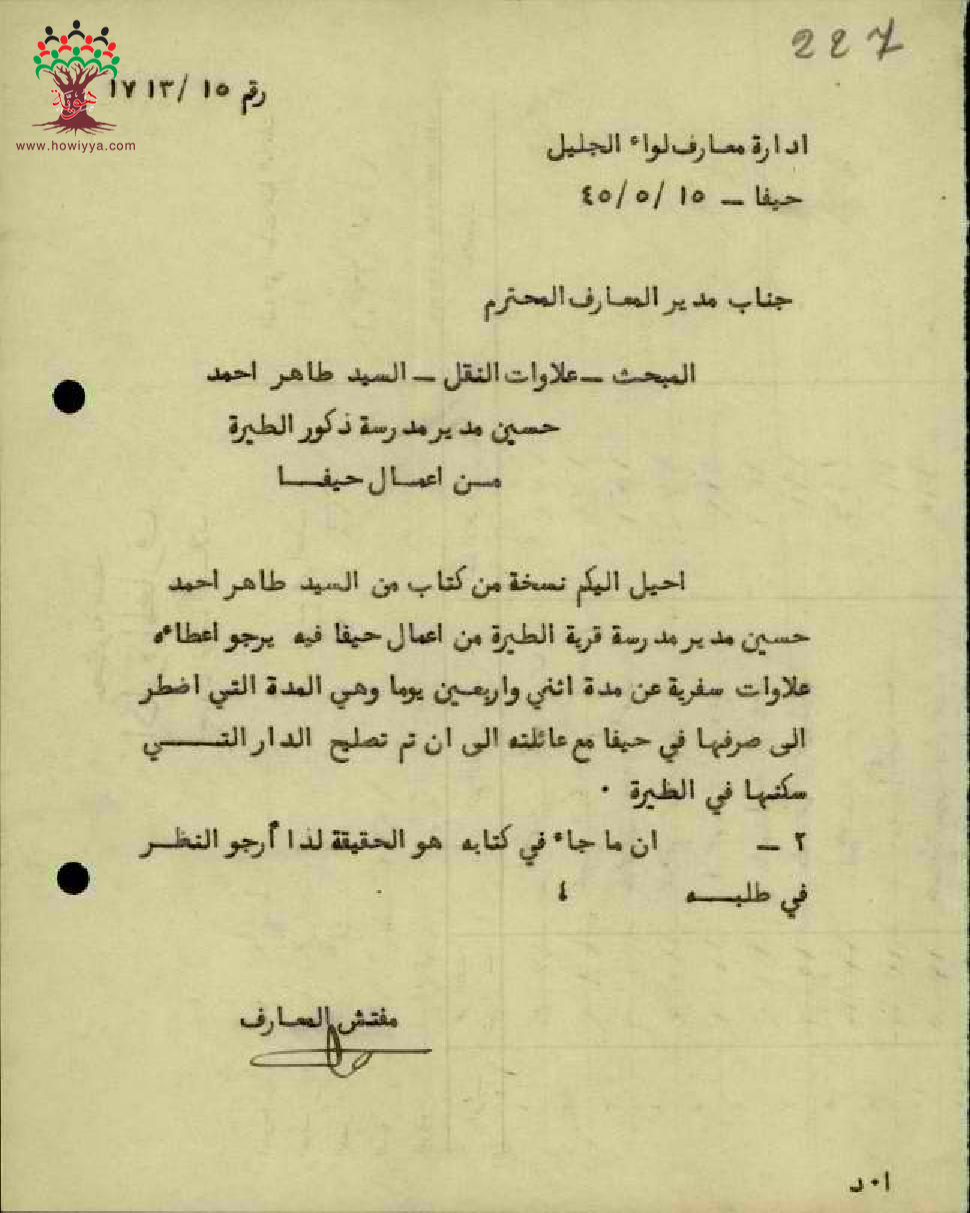 227
رقم ١٥ /١٧١٣
www.howiyya.com
ادارة معارف لواء الجليل
حيفا – ١٥ /٥ /٤٥
جناب مدير المعارف المحترم
المبحث – علاوات النقل – السيد طاهر احمد
حسين مدير مدرسة ذكور الطيرة
مـن اعمـال حيفـــا
احيل اليكم نسخة من كتاب من السيد طاهر احمد
حسين مدير مدرسة قرية الطيرة من اعمال حيفا فيه يرجو اعطاءه
علاوات سفرية عن مدة اثني واربعين يوما وهي المدة التي اضطر
الى صرفها في حيفا مع عائلته الى ان تم تصليح الدار التــــي
سكنها في الطيرة ٠
٢ – ان ما جاء في كتابه هو الحقيقة لذا أرجو النظـر
في طلبـــه ٤
مفتش المعارف
ا٠د